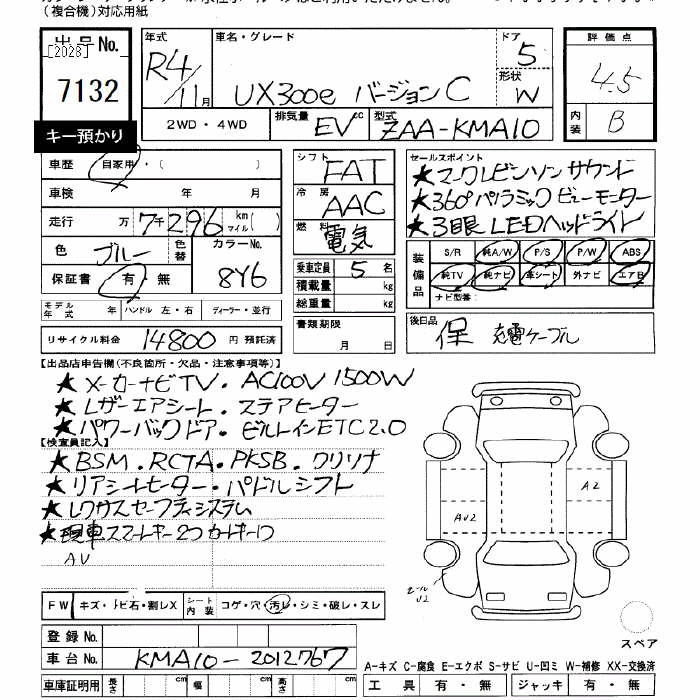 (複合機)対応用紙
出品No. [2028] 7132
キー預かり
年式 R4/11月 車名・グレード UX300e バージョンC ドア 5 形状 W
2WD・4WD 排気量 EV cc 型式 ZAA-KMA10
評価点 4.5
内装 B
車歴 自家用・( )
車検 年 月
走行 万 7千296 km マイル( )
色 ブルー 色替 カラーNo. 8Y6
保証書 有・無
モデル年式 年 ハンドル 左・右 ディーラー・並行
リサイクル料金 14800円 預託済
シフト FAT
冷房 AAC
燃料 電気
乗車定員 5名
積載量 kg
総重量 kg
書類期限 月 日
セールスポイント
★マークレビンソン サウンド
★360°パノラミックビューモニター
★3眼LEDヘッドライト
装備品 S/R 純A/W P/S P/W ABS
純TV 純ナビ 革シート 外ナビ エアB
ナビ型番:
後日品 保 充電ケーブル
【出品店申告欄(不良箇所・欠品・注意事項等)】
★メーカーナビTV・AC100V 1500W
★レザーエアシート・ステアヒーター
★パワーバックドア・ビルトインETC2.0
【検査員記入】
★BSM.RCTA.PKSB.クリソナ
★リアシートヒーター・パドルシフト
★レクサスセーフティシステム
★現車スマートキー2つ カードキー1つ
AV
A2
AU2
U2
FW キズ・トビ石・割レX シート内装 コゲ・穴・汚レ・シミ・破レ・スレ
スペア
登録No.
車台No. KMA10-2012767
A-キズ C-腐食 E-エクボ S-サビ U-凹ミ W-補修 XX-交換済
車庫証明用 長さ cm 幅 cm 高さ cm
工具 有・無 ジャッキ 有・無